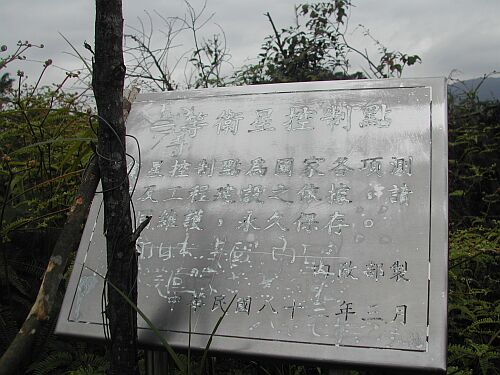 等衛星控制點
星控制點為國家各項測
及工程建設之依據,請
維護,永久保存。
內政部製
華民國八十 年三月